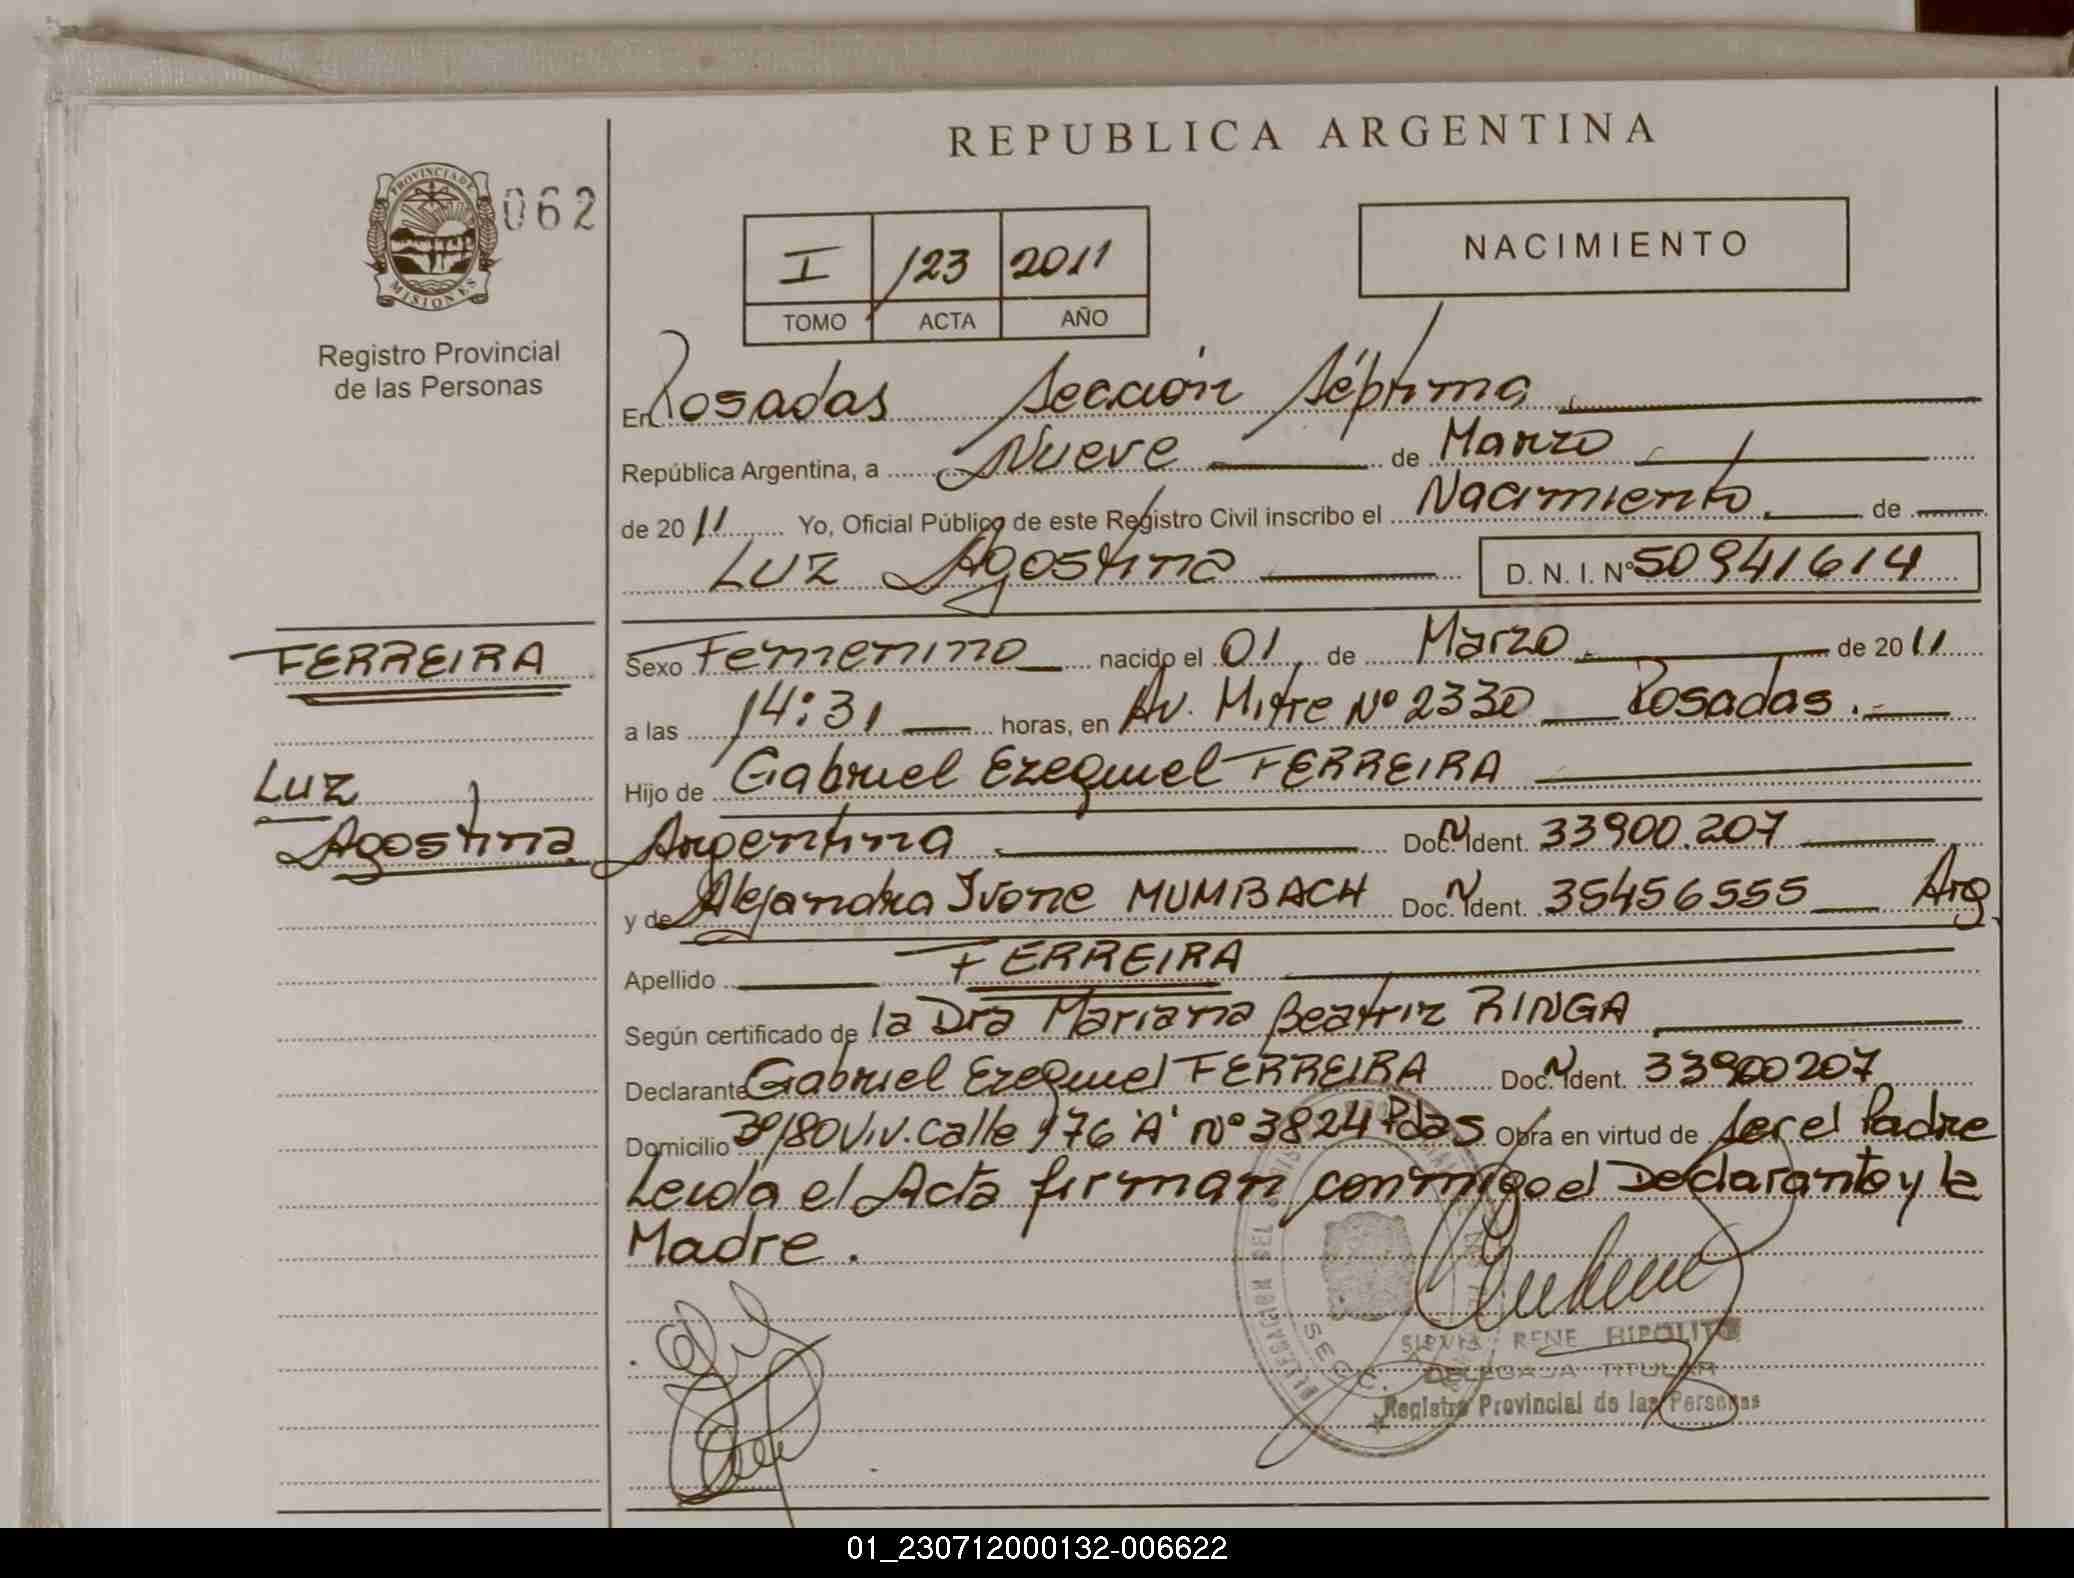 REPUBLICA ARGENTINA
PROVINCIA DE MISIONES
062
Registro Provincial
de las Personas
I 123 2011
TOMO ACTA AÑO
NACIMIENTO
En Posadas Sección Séptima
República Argentina, a Nueve de Marzo
de 2011 Yo, Oficial Público de este Registro Civil inscribo el Nacimiento de
Luz Agostina D. N. I. Nº 50941614
FERREIRA
Luz
Agostina
Sexo Femenino nacido el 01 de Marzo de 2011
a las 14:31 horas, en Av. Mitre Nº 2330 Posadas.
Hijo de Gabriel Ezequiel FERREIRA
Argentina Doc. Ident. 33900.207
y de Alejandra Ivone MUMBACH Doc. Ident. 35456555 Arg.
Apellido FERREIRA
Según certificado de la Dra Mariana Beatriz RINGA
Declarante Gabriel Ezequiel FERREIRA Doc. Ident. 33900207
Domicilio 80 Viv. Calle 176 'A' Nº 3824 Pdas Obra en virtud de ser el Padre
Leida el Acta firman conmigo el Declarante y la
Madre.
SILVIA RENE HIPOLITO
DELEGADA TITULAR
Registro Provincial de las Personas
SECC.
01_230712000132-006622